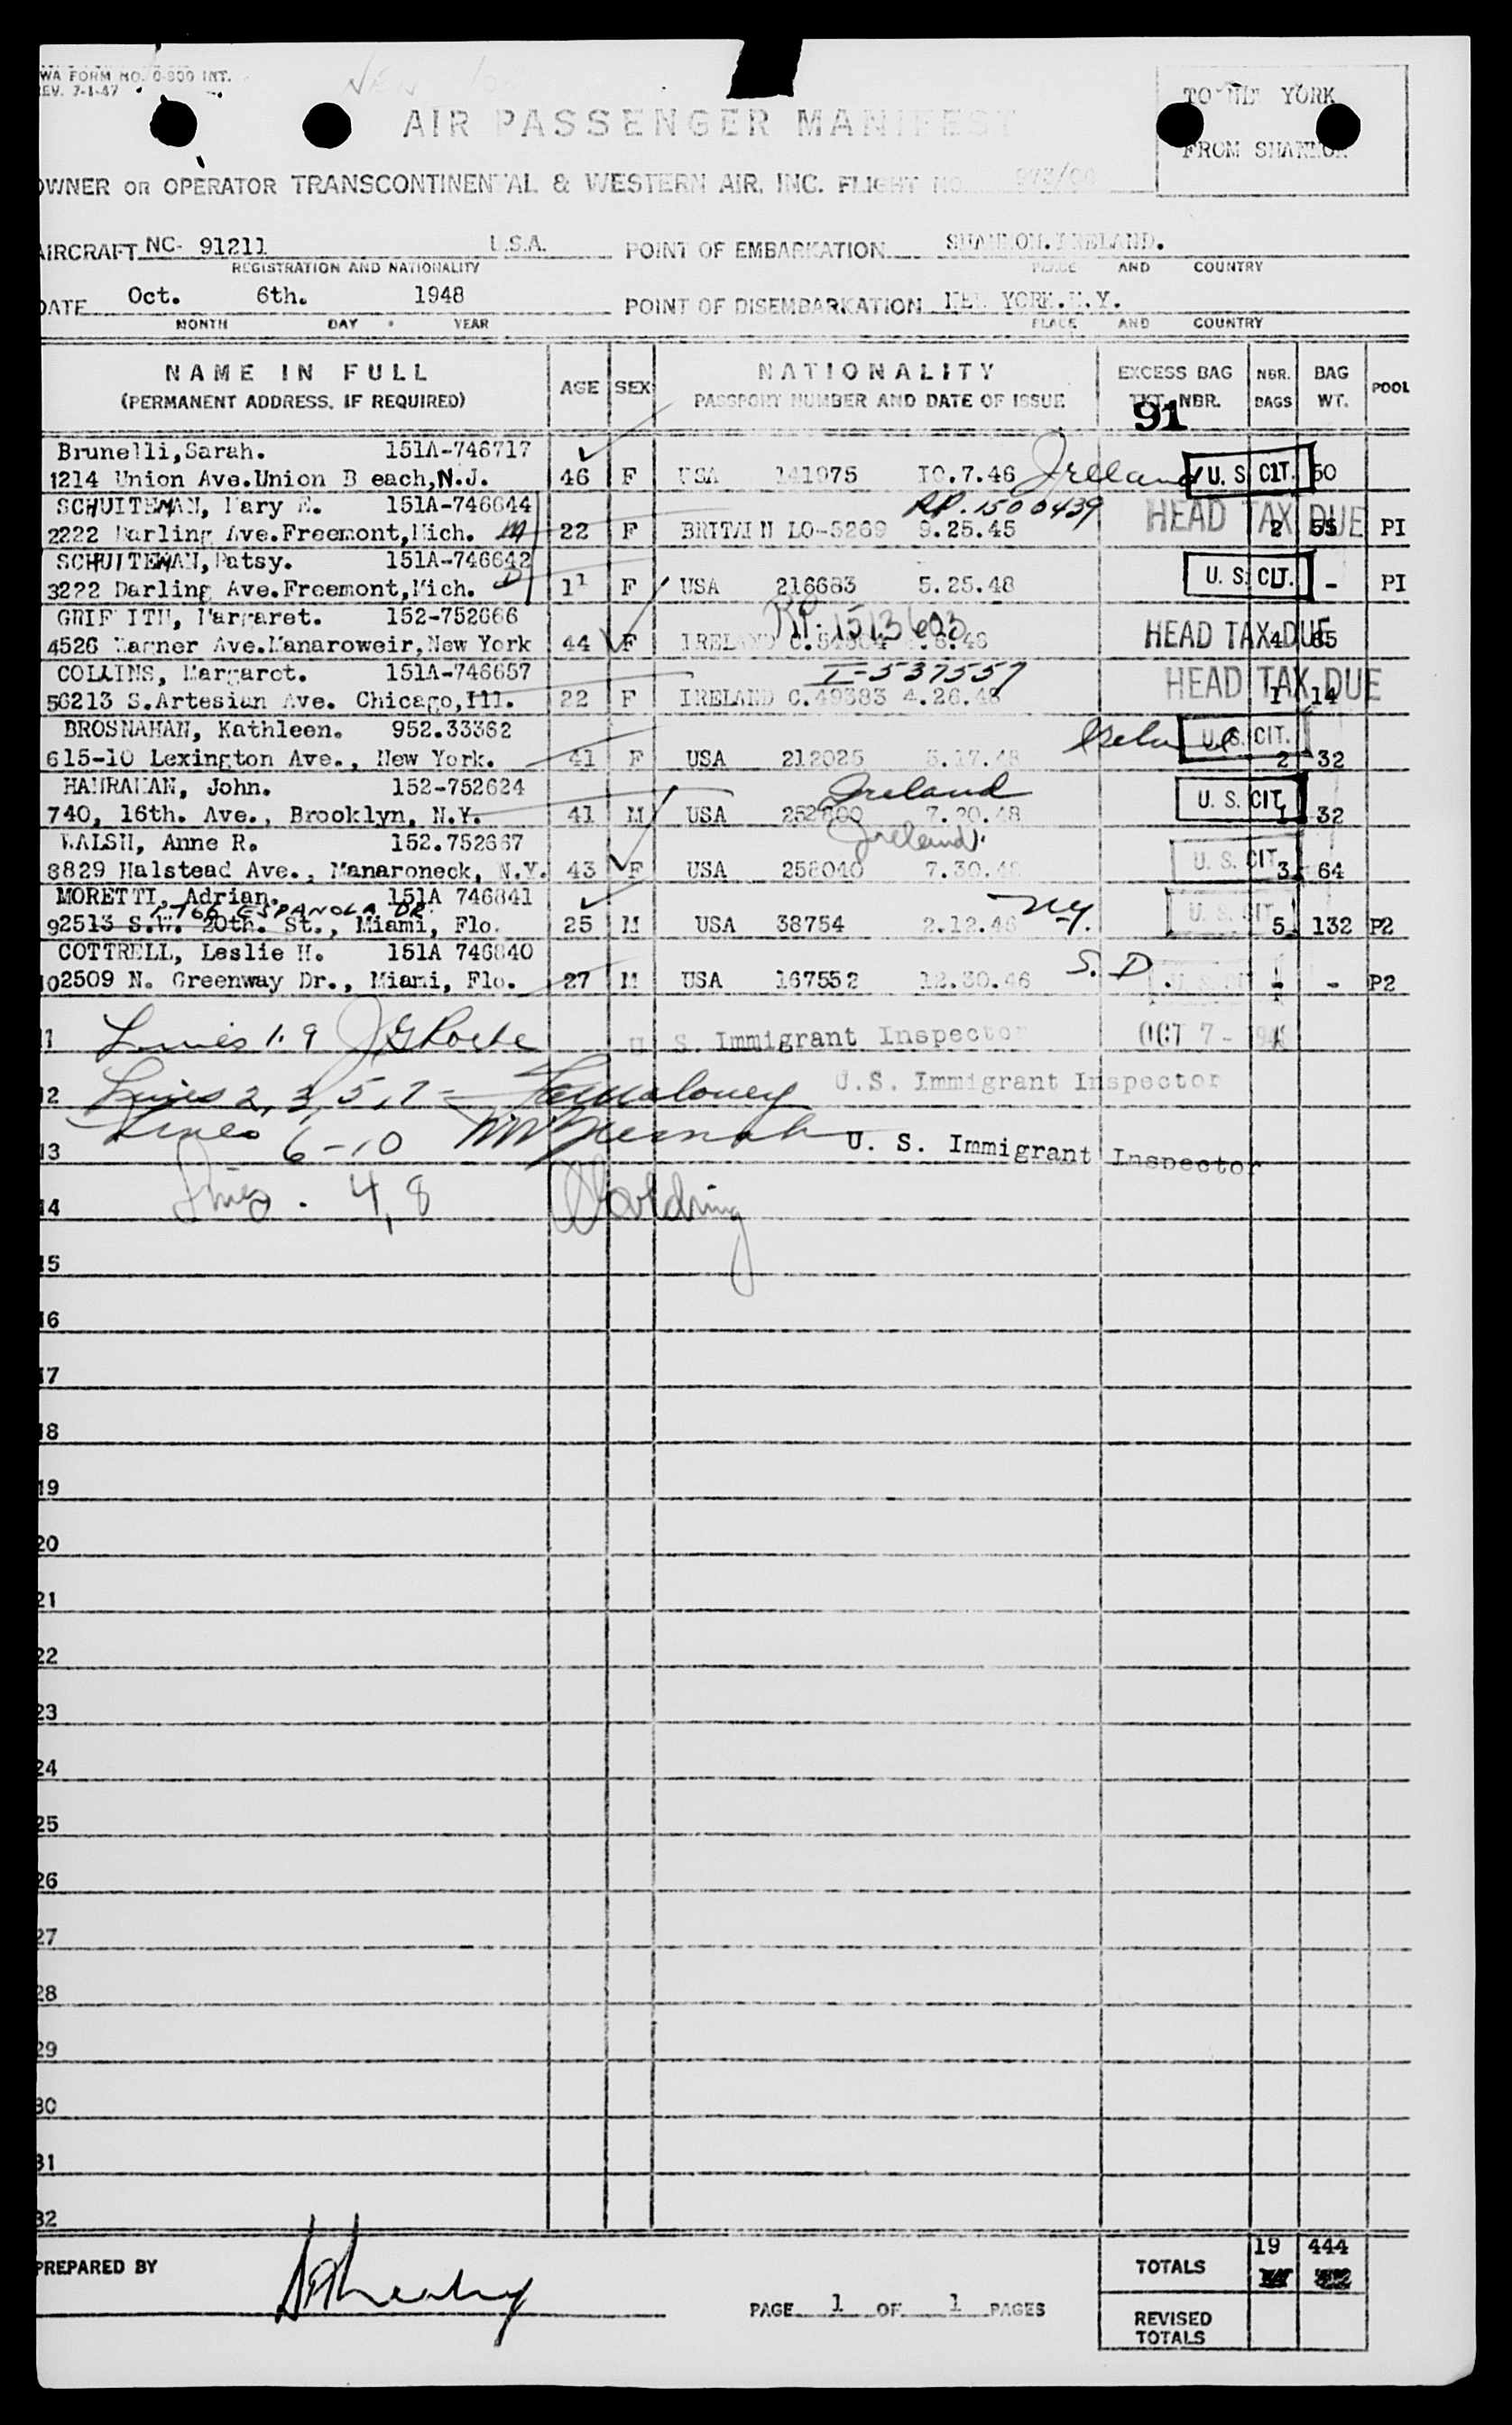 WA FORM NO. 0-800 INT.
EV. 7-1-47
AIR PASSENGER MANIFEST
TO NEW YORK
FROM SHANNON
OWNER OR OPERATOR TRANSCONTINENTAL & WESTERN AIR, INC. FLIGHT NO.
AIRCRAFT NC- 91211 U.S.A. POINT OF EMBARKATION SHANNON.IRELAND.
REGISTRATION AND NATIONALITY PLACE AND COUNTRY
DATE Oct. 6th. 1948 POINT OF DISEMBARKATION NEW YORK.N.Y.
MONTH DAY YEAR PLACE AND COUNTRY
NAME IN FULL AGE SEX NATIONALITY EXCESS BAG NBR. BAG POOL
(PERMANENT ADDRESS, IF REQUIRED) PASSPORT NUMBER AND DATE OF ISSUE TKT. NBR. BAGS WT.
91
Brunelli,Sarah. 151A-746717
1214 Union Ave.Union B each,N.J. 46 F USA 141975 10.7.46 Ireland U. S. CIT. 50
SCHUITEMAN, Mary E. 151A-746644 RP.1500439
2222 Darling Ave.Freemont,Mich. M 22 F BRITAIN LO-5269 9.25.45 HEAD TAX DUE 2 55 PI
SCHUITEMAN,Patsy. 151A-746642
3222 Darling Ave.Freemont,Mich. D 11 F USA 216683 5.25.48 U. S. CIT. - PI
GRIF ITH, Margaret. 152-752666 RP.1513603
4526 Wagner Ave.Manaroweir,New York 44 F IRELAND HEAD TAX DUE 4 65
COLLINS, Margaret. 151A-746657 I-537557
56213 S.Artesian Ave. Chicago,Ill. 22 F IRELAND C.49383 4.26.48 HEAD TAX DUE 1 14
BROSNAHAN, Kathleen. 952.33362 Ireland U. S. CIT.
615-10 Lexington Ave., New York. 41 F USA 212025 5.17.48 2 32
HANRAHAN, John. 152-752624 Ireland U. S. CIT.
740, 16th. Ave., Brooklyn, N.Y. 41 M USA 7.20.48 1 32
WALSH, Anne R. 152.752667 Ireland U. S. CIT.
8829 Halstead Ave., Manaroneck, N.Y. 43 F USA 258040 7.30.48 3 64
MORETTI, Adrian. 151A 746841
1766 ESPANOLA DR. N.Y. U. S. CIT.
92513 S.W. 20th. St., Miami, Flo. 25 M USA 38754 2.12.46 5 132 P2
COTTRELL, Leslie H. 151A 746840 S. D.
102509 N. Greenway Dr., Miami, Flo. 27 M USA 167552 12.30.46 - - P2
11 Lines 1.9 J G Roche U. S. Immigrant Inspector OCT 7 - 1948
12 Lines 2, 3, 5, 7 - U.S. Immigrant Inspector
13 Lines 6-10 U. S. Immigrant Inspector
14 Lines . 4, 8
15
16
17
18
19
20
21
22
23
24
25
26
27
28
29
30
31
32
PREPARED BY TOTALS 19 444
PAGE 1 OF 1 PAGES
REVISED
TOTALS